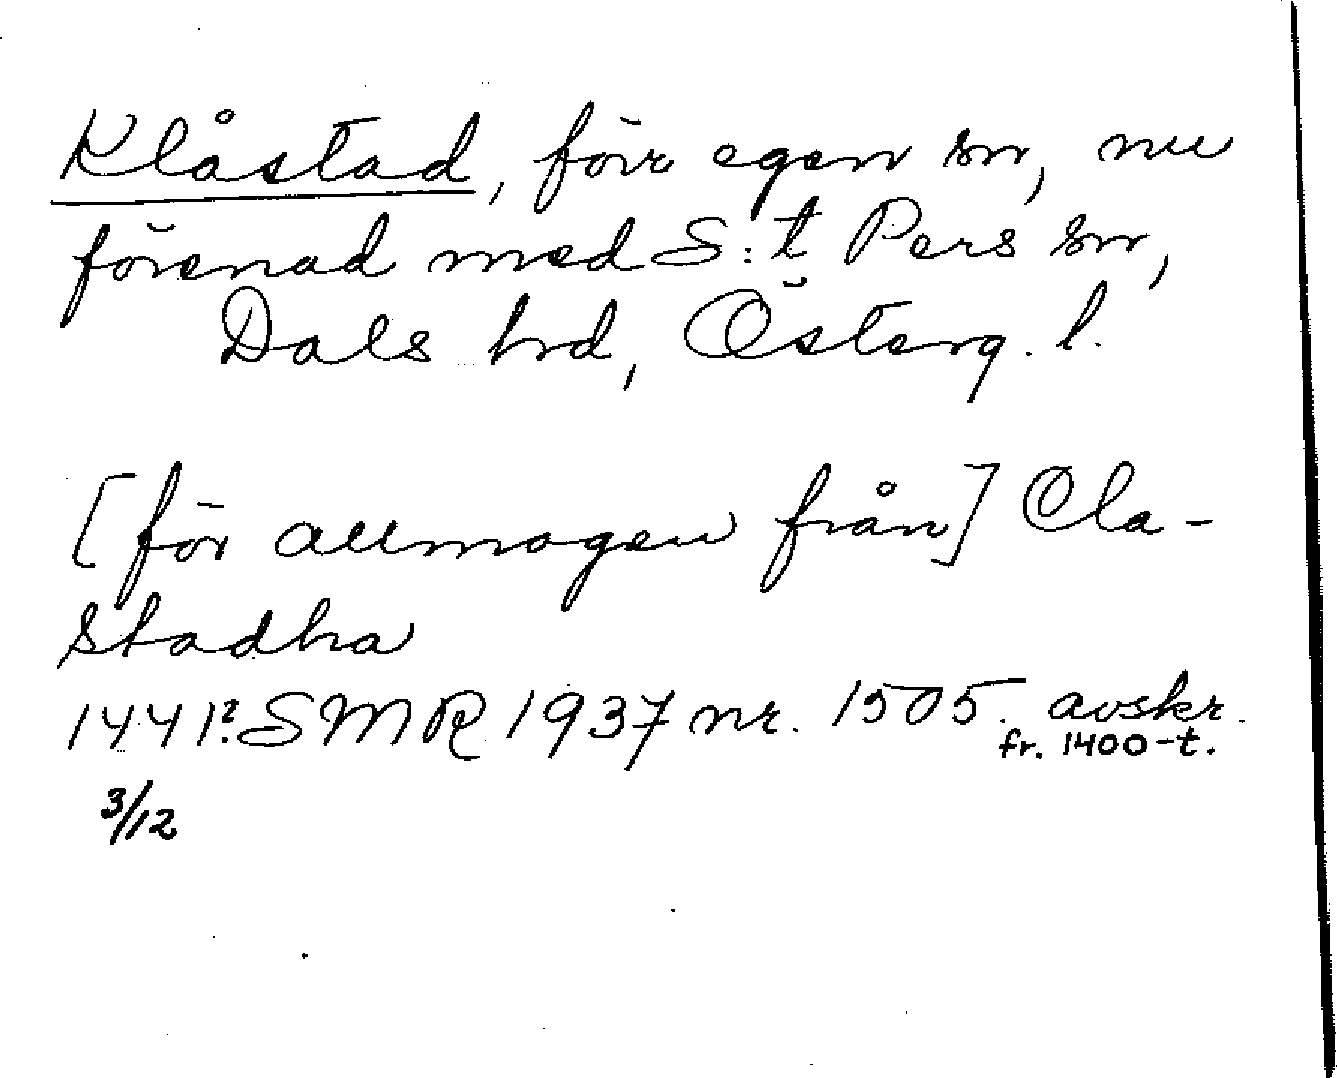 Klåstad, förr egen sn, nu
förenad med S:t Pers sn,
Dals hd, Österg. l.
[för allmogen från] Cla-
stadha
1441? SMR 1937 nr. 1505. avskr.
fr. 1400-t.
3/12